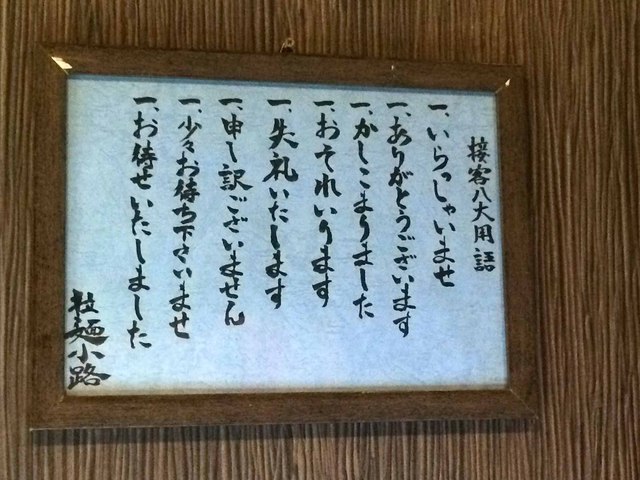 接客八大用語
一、いらっしゃいませ
一、ありがとうございます
一、かしこまりました
一、おそれいります
一、失礼いたします
一、申し訳ございません
一、少々お待ち下さいませ
一、お待せいたしました
拉麺小路